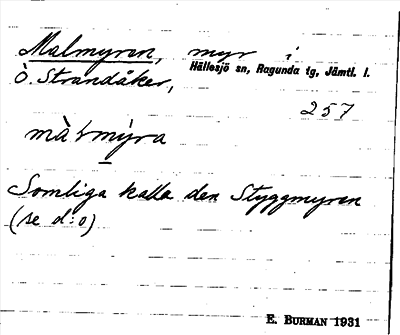 Malmyren, myr i
Hällesjö sn, Ragunda tg, Jämtl. l.
Ö. Strandåker,
257
màtmỳra
Somliga kalla den Styggmyren
(se d:o)
E. BURMAN 1931